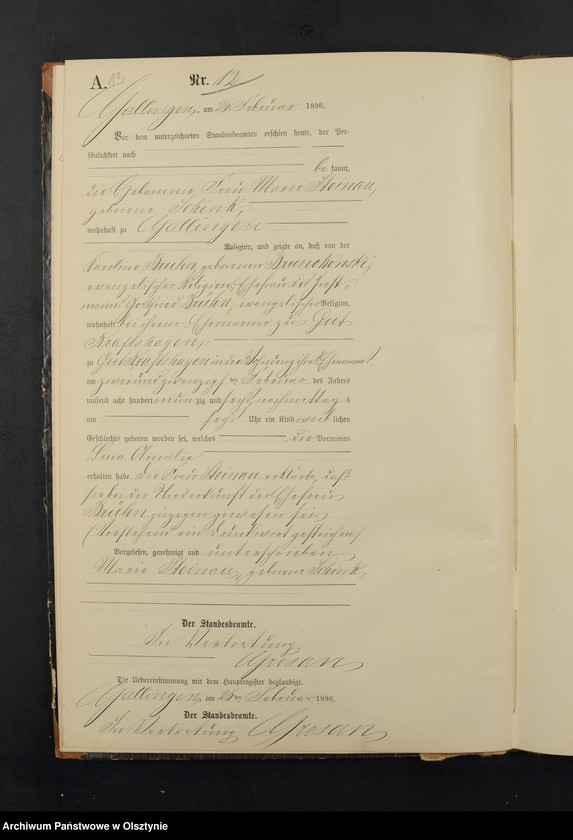 A. 13 Nr. 12
Gallingen, am 24 Februar 1896.
Vor dem unterzeichneten Standesbeamten erschien heute, der Per-
sönlichkeit nach
be kannt,
die Hebamme, Frau Marie Steinau,
geborene Schink,
wohnhaft zu Gallingen
Religion, und zeigte an, daß von der
Karoline Bruhn geborenen
evangelischer Religion, Ehefrau des Inst-
manns Gottfried Bruhn, evangelischer Religion,
wohnhaft bei ihrem Ehemanne zu Gut
Kraftshagen
zu Gut Kraftshagen in der Wohnung ihres Ehemannes
am zweiundzwanzigsten Februar des Jahres
tausend acht hundert neun zig und sechs nachmittags
um sechs Uhr ein Kind weiblichen
Geschlechts geboren worden sei, welches die Vornamen
Lina Amalie
erhalten habe. Die Frau Steinau erklärte, daß
sie bei der Niederkunft der Ehefrau
Bruhn zugegen gewesen sei
(Vorstehend ein Druckwort gestrichen)
Vorgelesen, genehmigt und unterschrieben
Marie Steinau, geborene Schink,
Der Standesbeamte.
In Vertretung
Die Uebereinstimmung mit dem Hauptregister beglaubigt.
Gallingen, am Februar 1896.
Der Standesbeamte.
In Vertretung
Archiwum Państwowe w Olsztynie